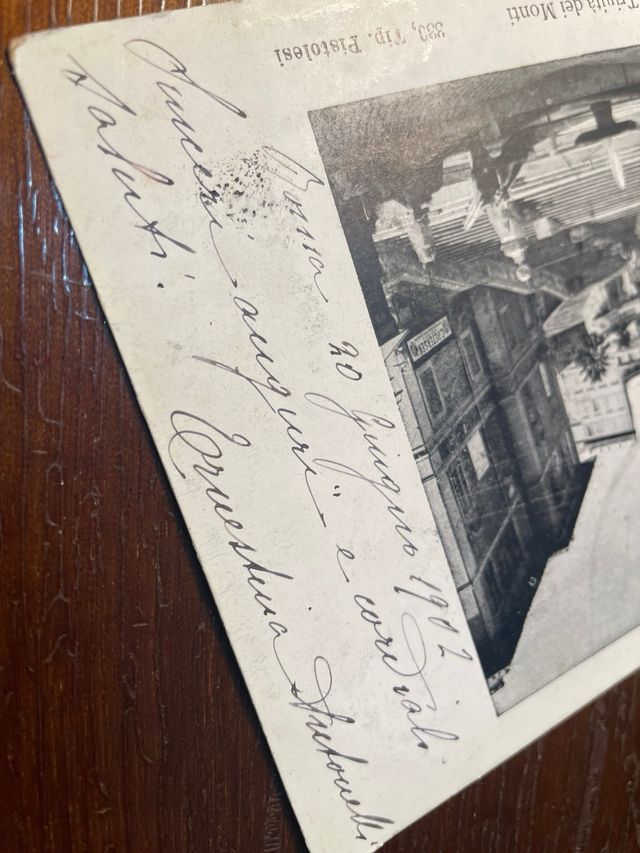 Trinità dei Monti
Tip. Pistolesi
Roma 20 Giugno 1902
Sinceri auguri e cordiali
Saluti.
Ernestina Antonelli